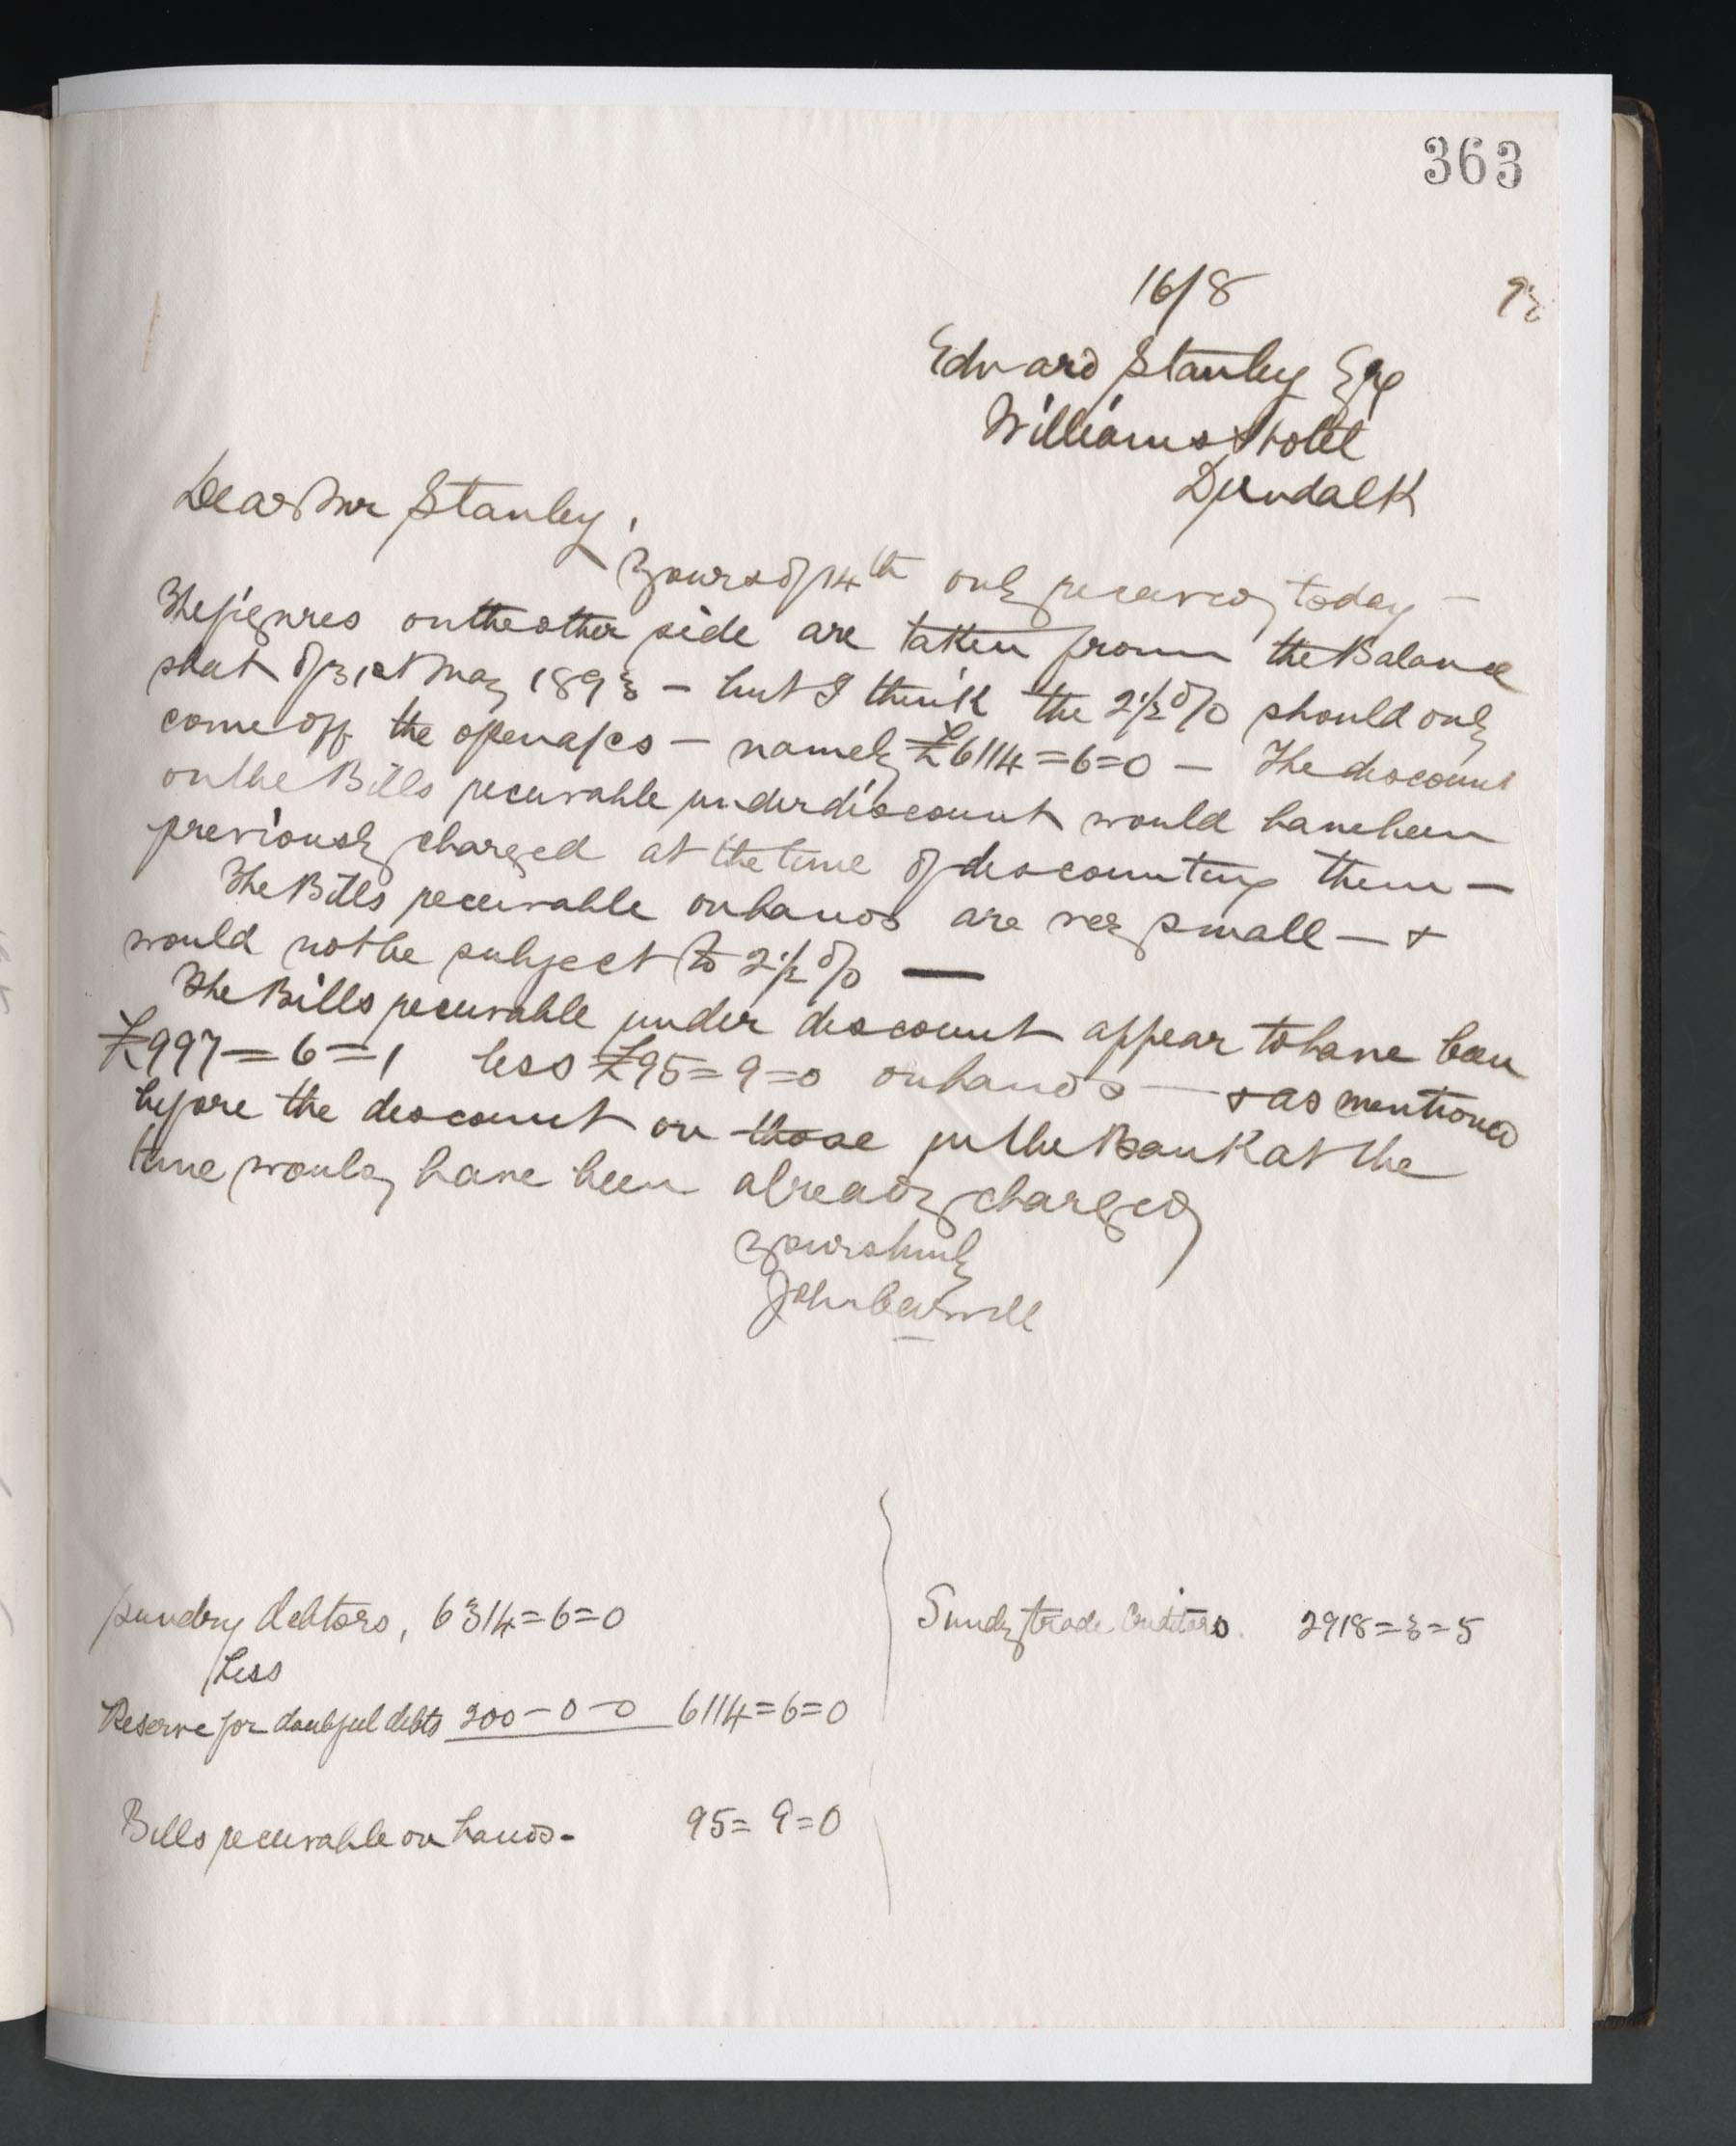 363
16/8 93
Edward Stanley Esq
Williams Hotel
Dundalk
Dear Mr Stanley,
Yours of 14th only received today —
The figures on the other side are taken from the Balance
sheet of 31st May 1893 — but I think the 2½% should only
come off the open a/cs — namely £6114=6=0 — The discount
on the Bills receivable under discount would have been
previously charged at the time of discounting them —
The Bills receivable on hands are very small — &
would not be subject to 2½% —
The Bills receivable under discount appear to have been
£997=6=1 less £95=9=0 on hands — & as mentioned
before the discount on those in the Bank at the
time would have been already charged
Yours truly
John
Sundry debtors, 6314=6=0
Less
Reserve for doubtful debts 200-0-0 6114=6=0
Bills receivable on hands - 95=9=0
Sundry trade Creditors. 2918=3=5